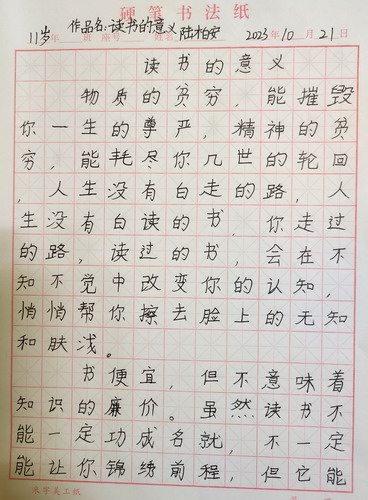 硬笔书法纸
11岁 年 班 座号 作品名:读书的意义 姓名 陆柏安 2023年10月21日
读书的意义
物质的贫穷,能摧毁
你一生的尊严,精神的贫
穷,能耗尽你几世的轮回
,人生没有白走的路,人
生没有白读的书,你走过
的路,读过的书,会在不
知不觉中改变你的认知,
悄悄帮你擦去脸上的无知
和肤浅。
书便宜,但不意味着
知识的廉价。虽然读书不
能一定功成名就,不一定
能让你锦绣前程,但它能
米字美工纸